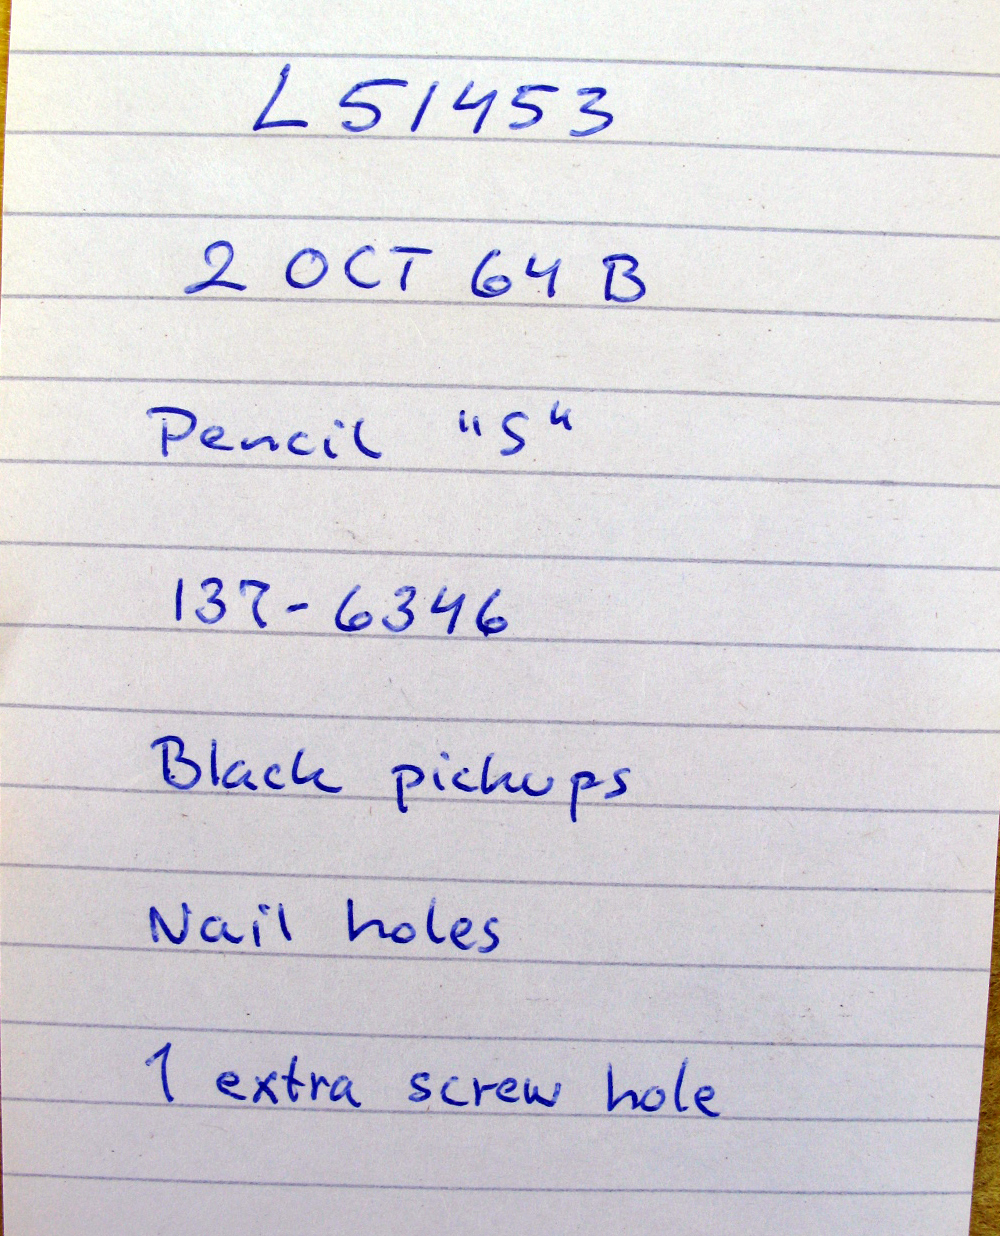 L51453
2 OCT 64 B
Pencil "S"
137-6346
Black pickups
Nail holes
1 extra screw hole